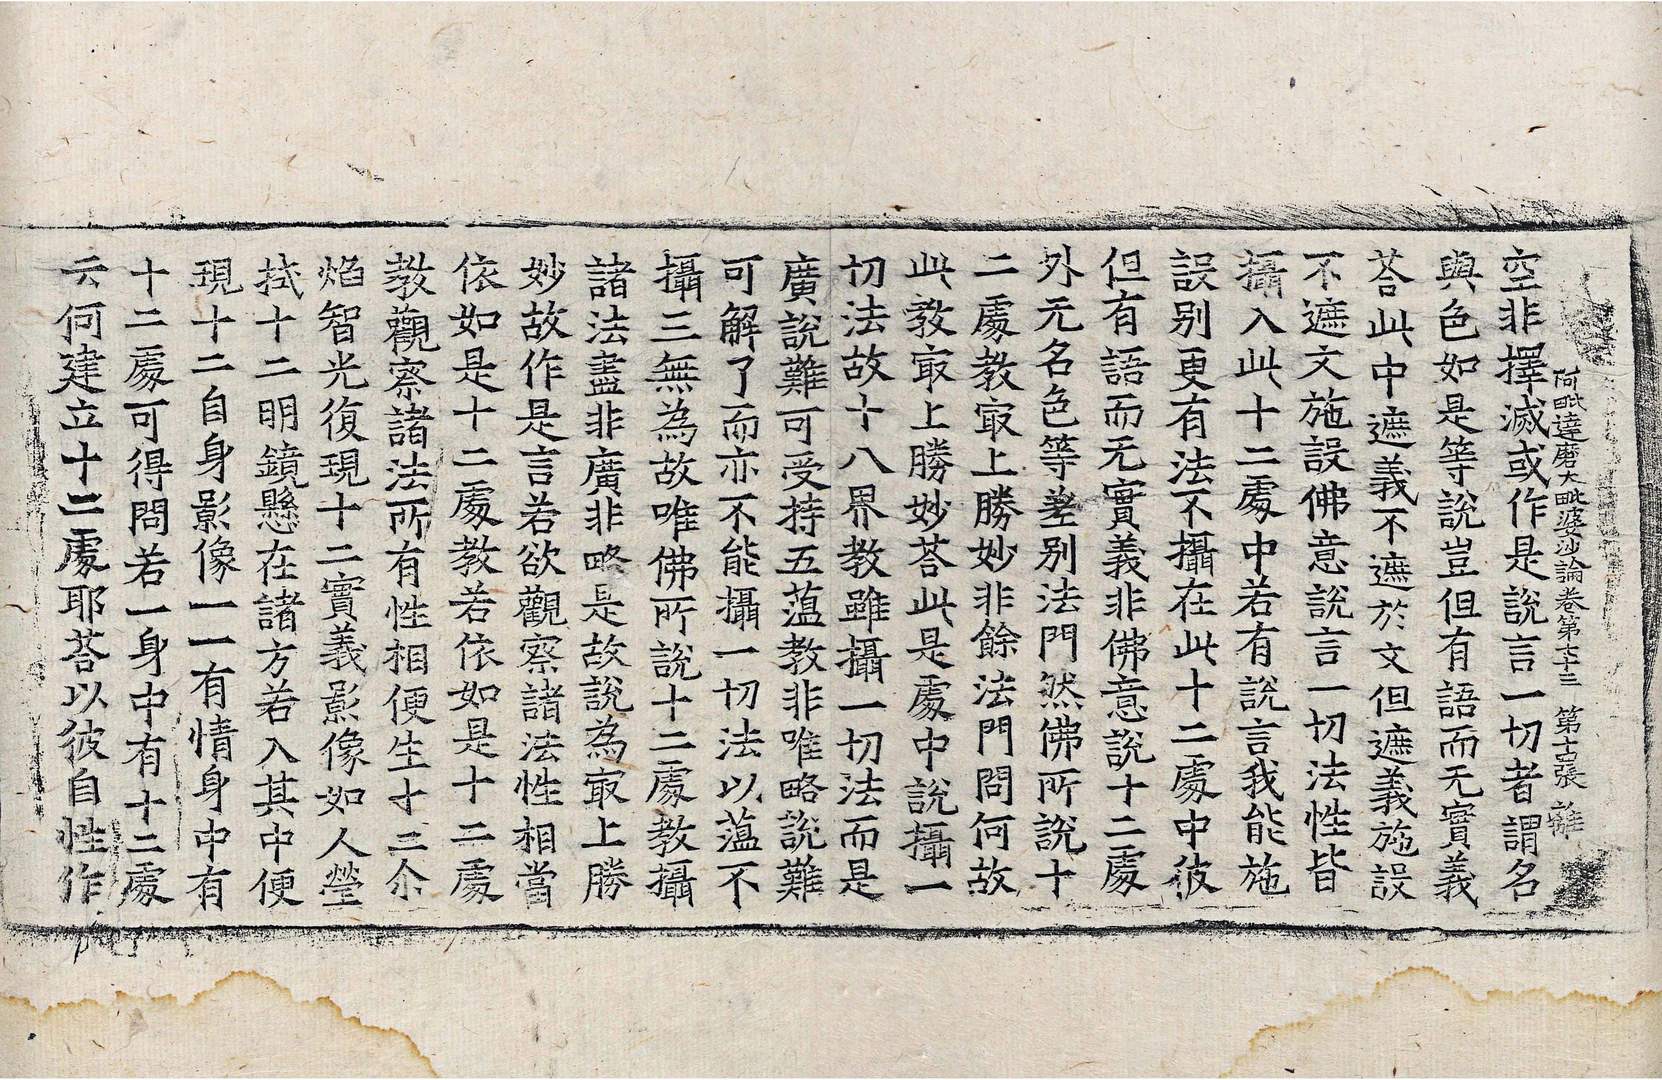 阿毗達磨大毗婆沙論卷第七十三 第十五張 雖
空非擇滅或作是說言一切者謂名
與色如是等說豈但有語而无實義
荅此中遮義不遮於文但遮義施設
不遮文施設佛意說言一切法性皆
攝入此十二處中若有說言我能施
設別更有法不攝在此十二處中彼
但有語而无實義非佛意說十二處
外无名色等差別法門然佛所說十
二處教㝡上勝妙非餘法門問何故
此教㝡上勝妙荅此是處中說攝一
切法故十八界教雖攝一切法而是
廣說難可受持五蕰教非唯略說難
可解了而亦不能攝一切法以蕰不
攝三無為故唯佛所說十二處教攝
諸法盡非廣非略是故說為㝡上勝
妙故作是言若欲觀察諸法性相當
依如是十二處教若依如是十二處
教觀察諸法所有性相便生十二尒
焰智光復現十二實義影像如人瑩
拭十二明鏡懸在諸方若入其中便
現十二自身影像一一有情身中有
十二處可得問若一身中有十二處
云何建立十二處耶荅以彼自性作